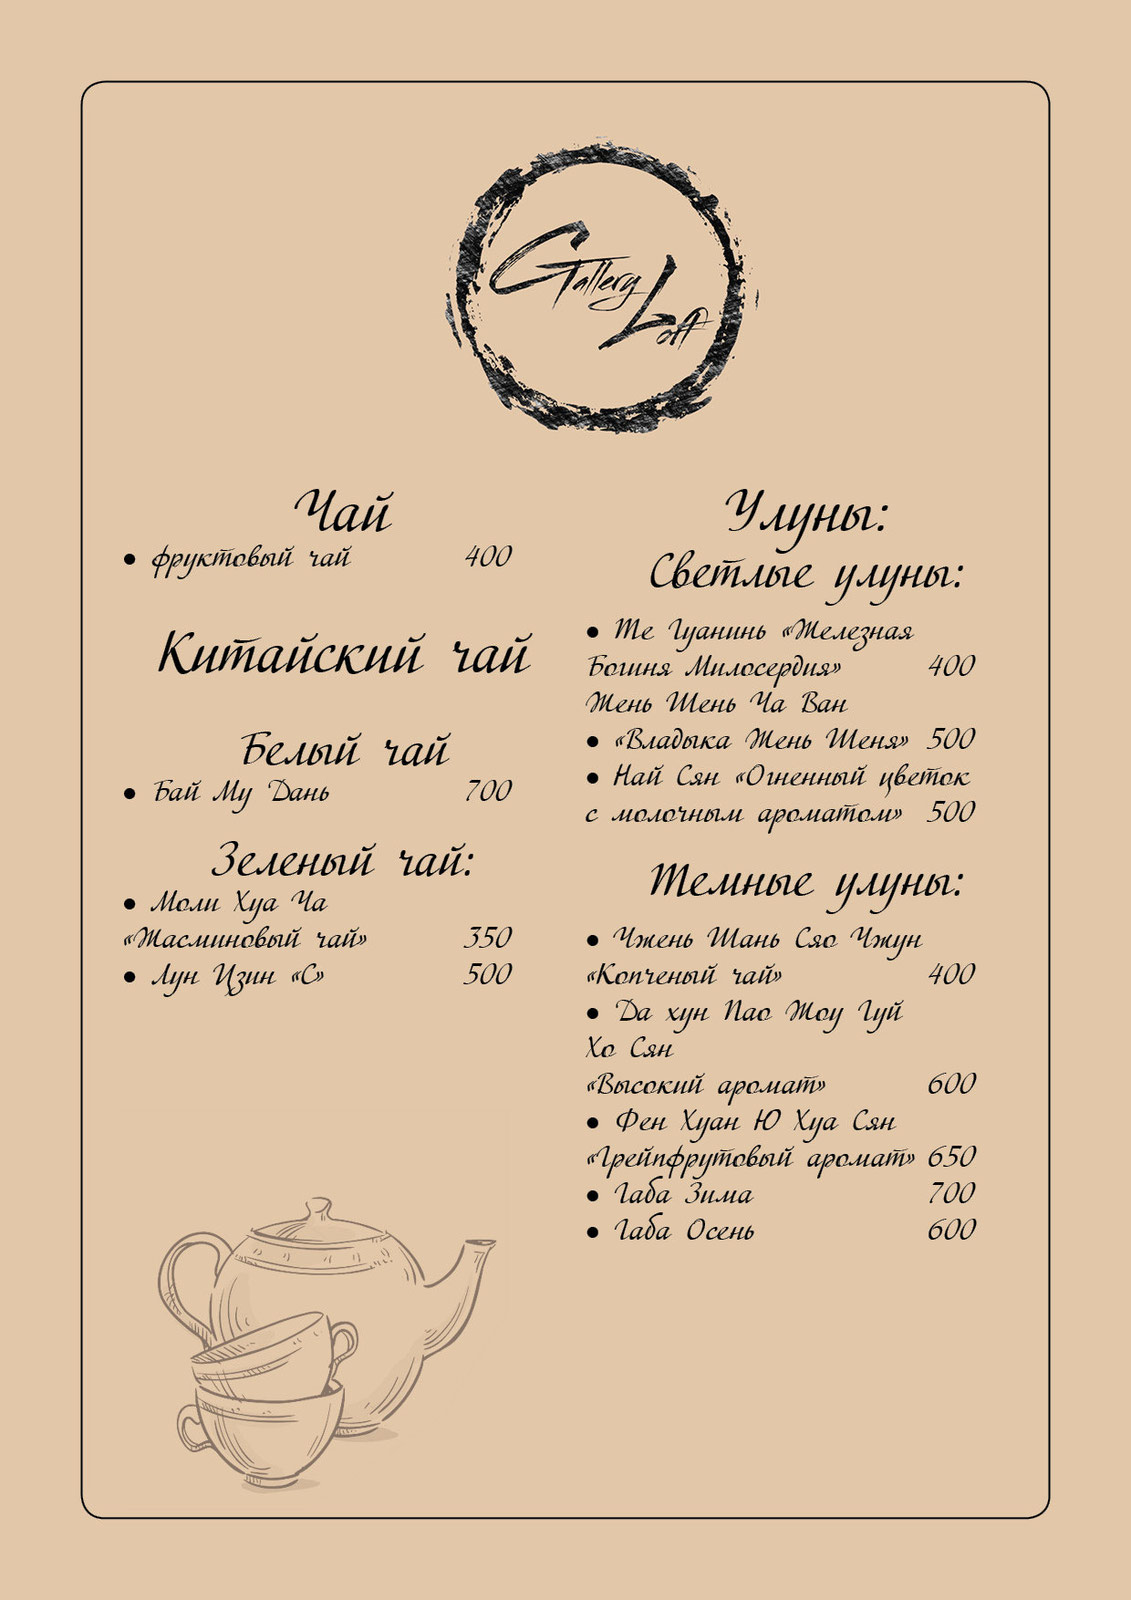 Gallery
Loft
Чай
• фруктовый чай 400
Китайский чай
Белый чай
• Бай Му Дань 700
Зеленый чай:
• Моли Хуа Ча
«Жасминовый чай» 350
• Лун Цзин «С» 500
Улуны:
Светлые улуны:
• Те Гуанинь «Железная
Богиня Милосердия» 400
Жень Шень Ча Ван
• «Владыка Жень Шеня» 500
• Най Сян «Огненный цветок
с молочным ароматом» 500
Темные улуны:
• Чжень Шань Сяо Чжун
«Копченый чай» 400
• Да хун Пао Жоу Гуй
Хо Сян
«Высокий аромат» 600
• Фен Хуан Ю Хуа Сян
«Грейпфрутовый аромат» 650
• Габа Зима 700
• Габа Осень 600